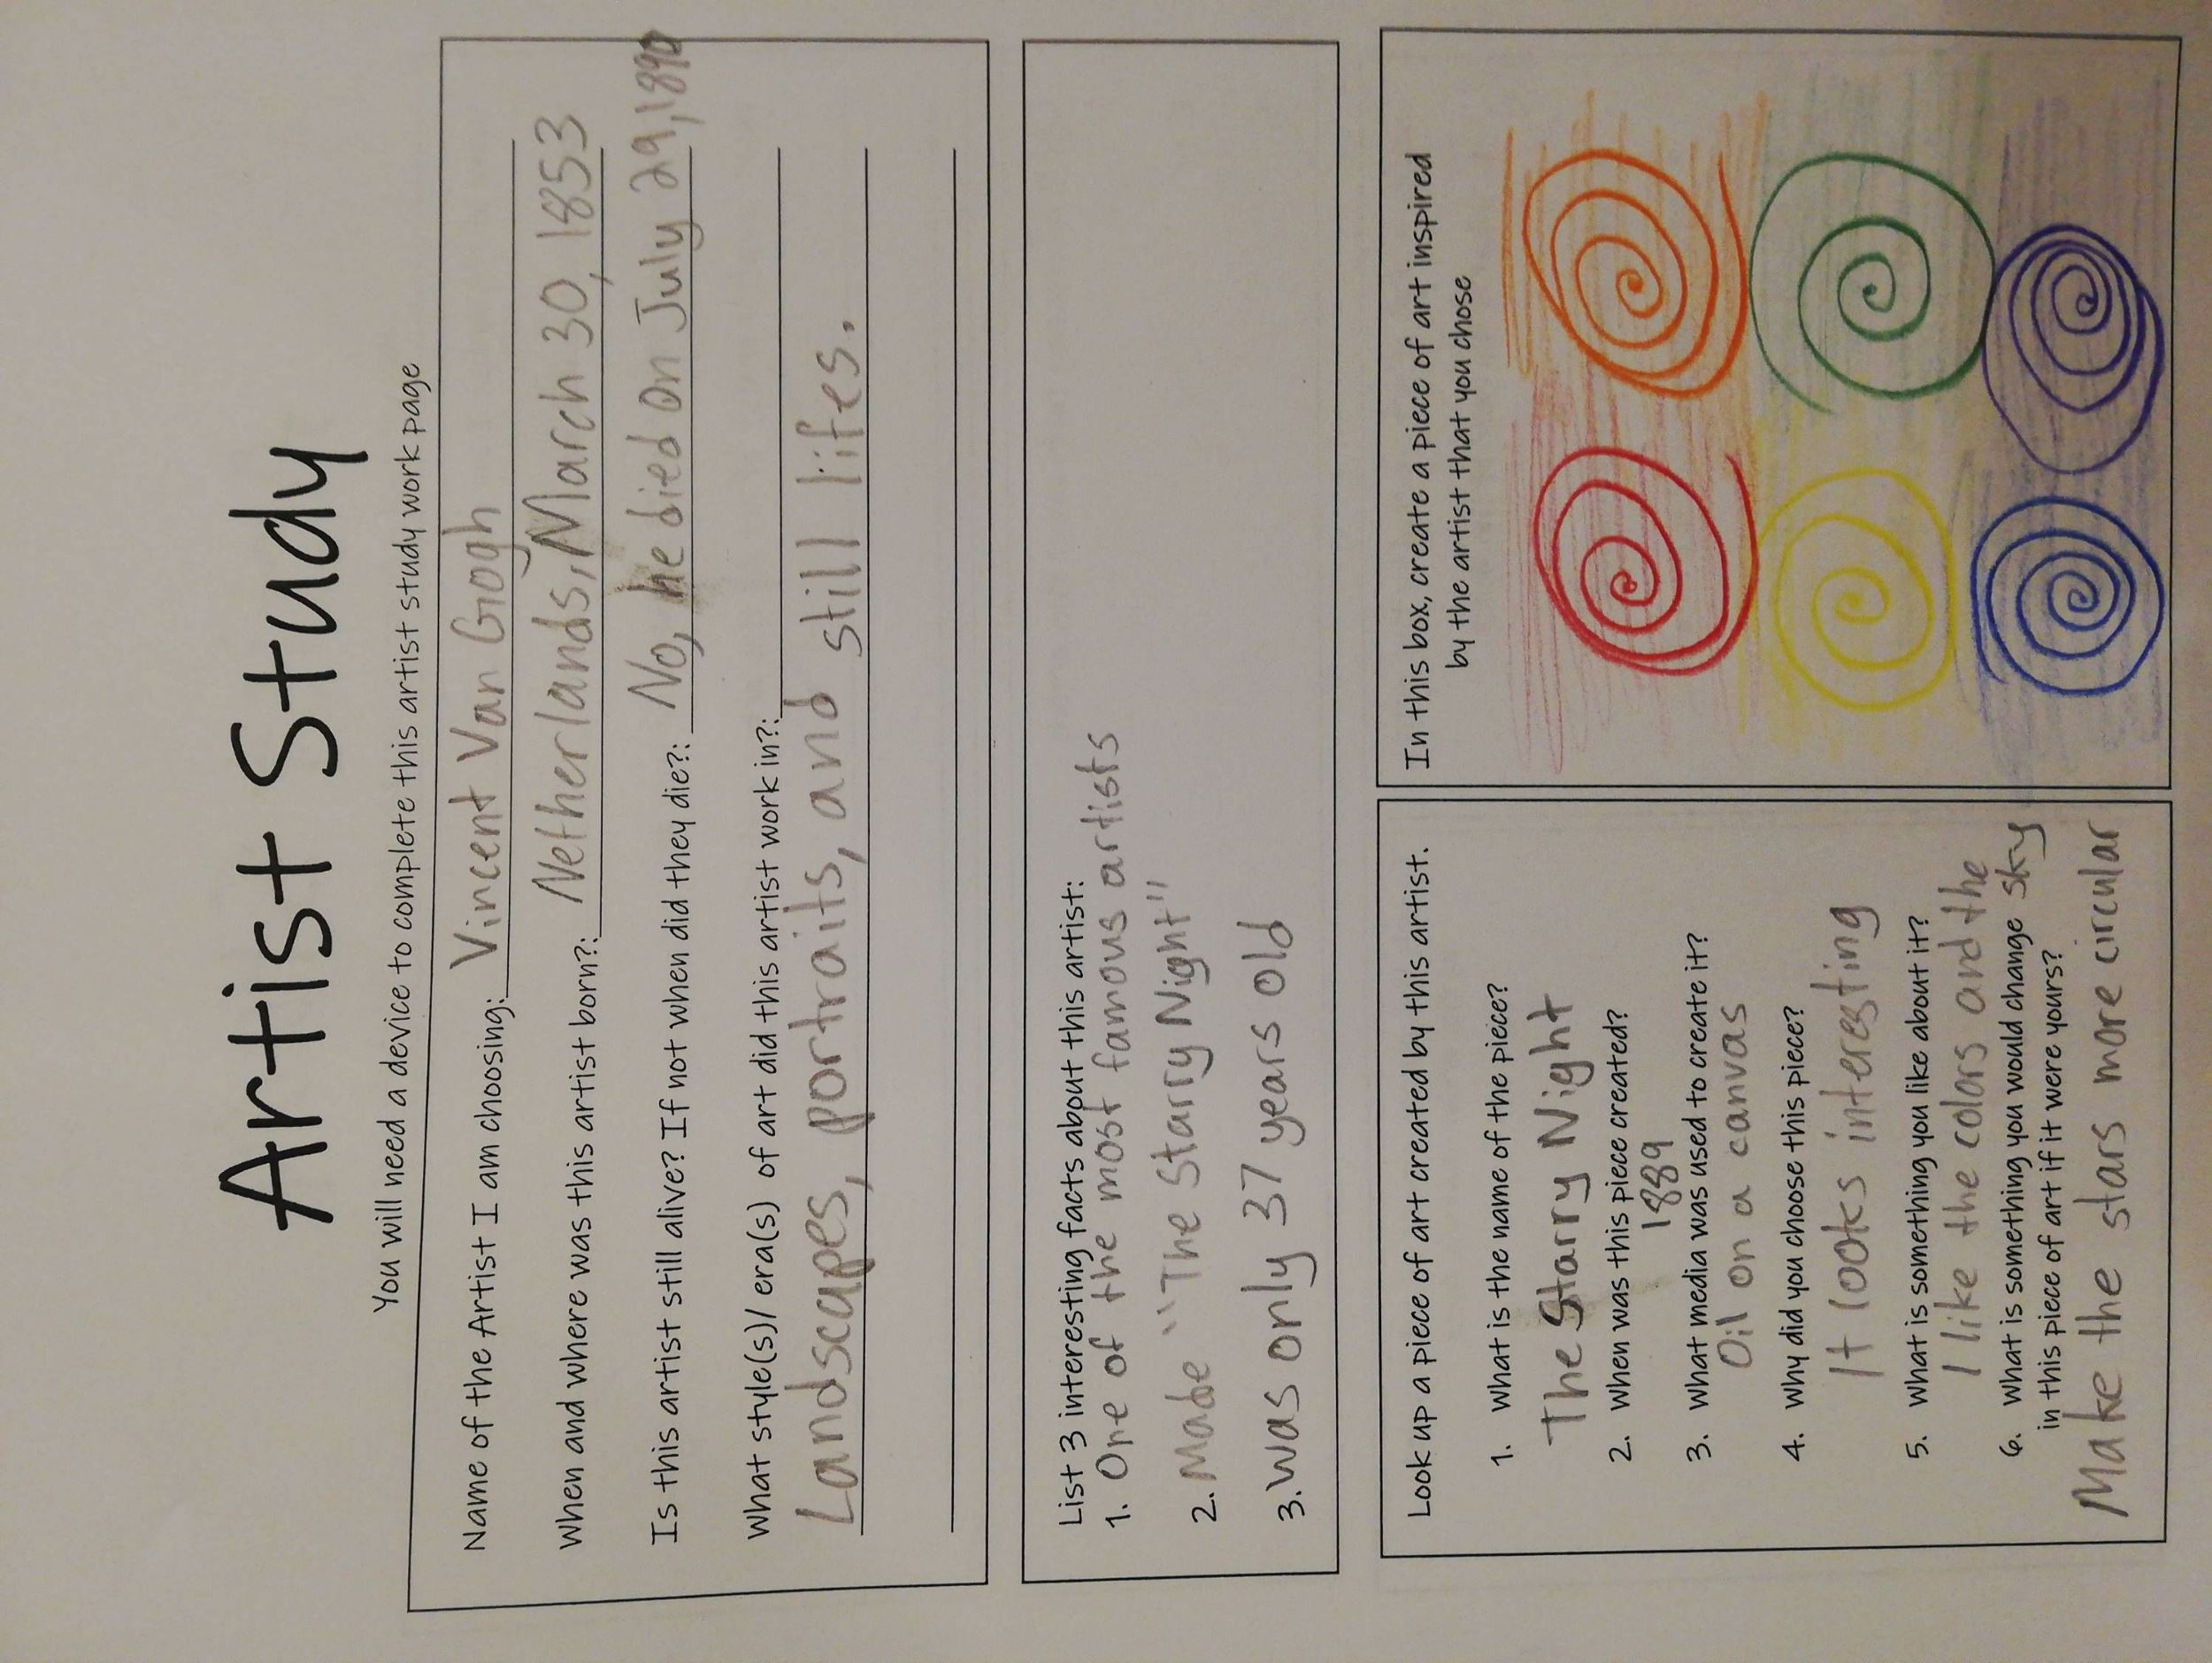 Artist Study
You will need a device to complete this artist study work page
Name of the Artist I am choosing: Vincent Van Gogh
When and where was this artist born?: Netherlands, March 30, 1853
Is this artist still alive? If not when did they die?: No, he died on July 29, 1890
What style(s)/ era(s) of art did this artist work in?:
Landscapes, portraits, and still lifes.
List 3 interesting facts about this artist:
1. One of the most famous artists
2. Made "The Starry Night"
3. Was only 37 years old
Look up a piece of art created by this artist.
1. What is the name of the piece?
The Starry Night
2. When was this piece created?
1889
3. What media was used to create it?
Oil on a canvas
4. Why did you choose this piece?
It looks interesting
5. What is something you like about it?
I like the colors and the
sky
6. What is something you would change
in this piece of art if it were yours?
Make the stars more circular
In this box, create a piece of art inspired
by the artist that you chose